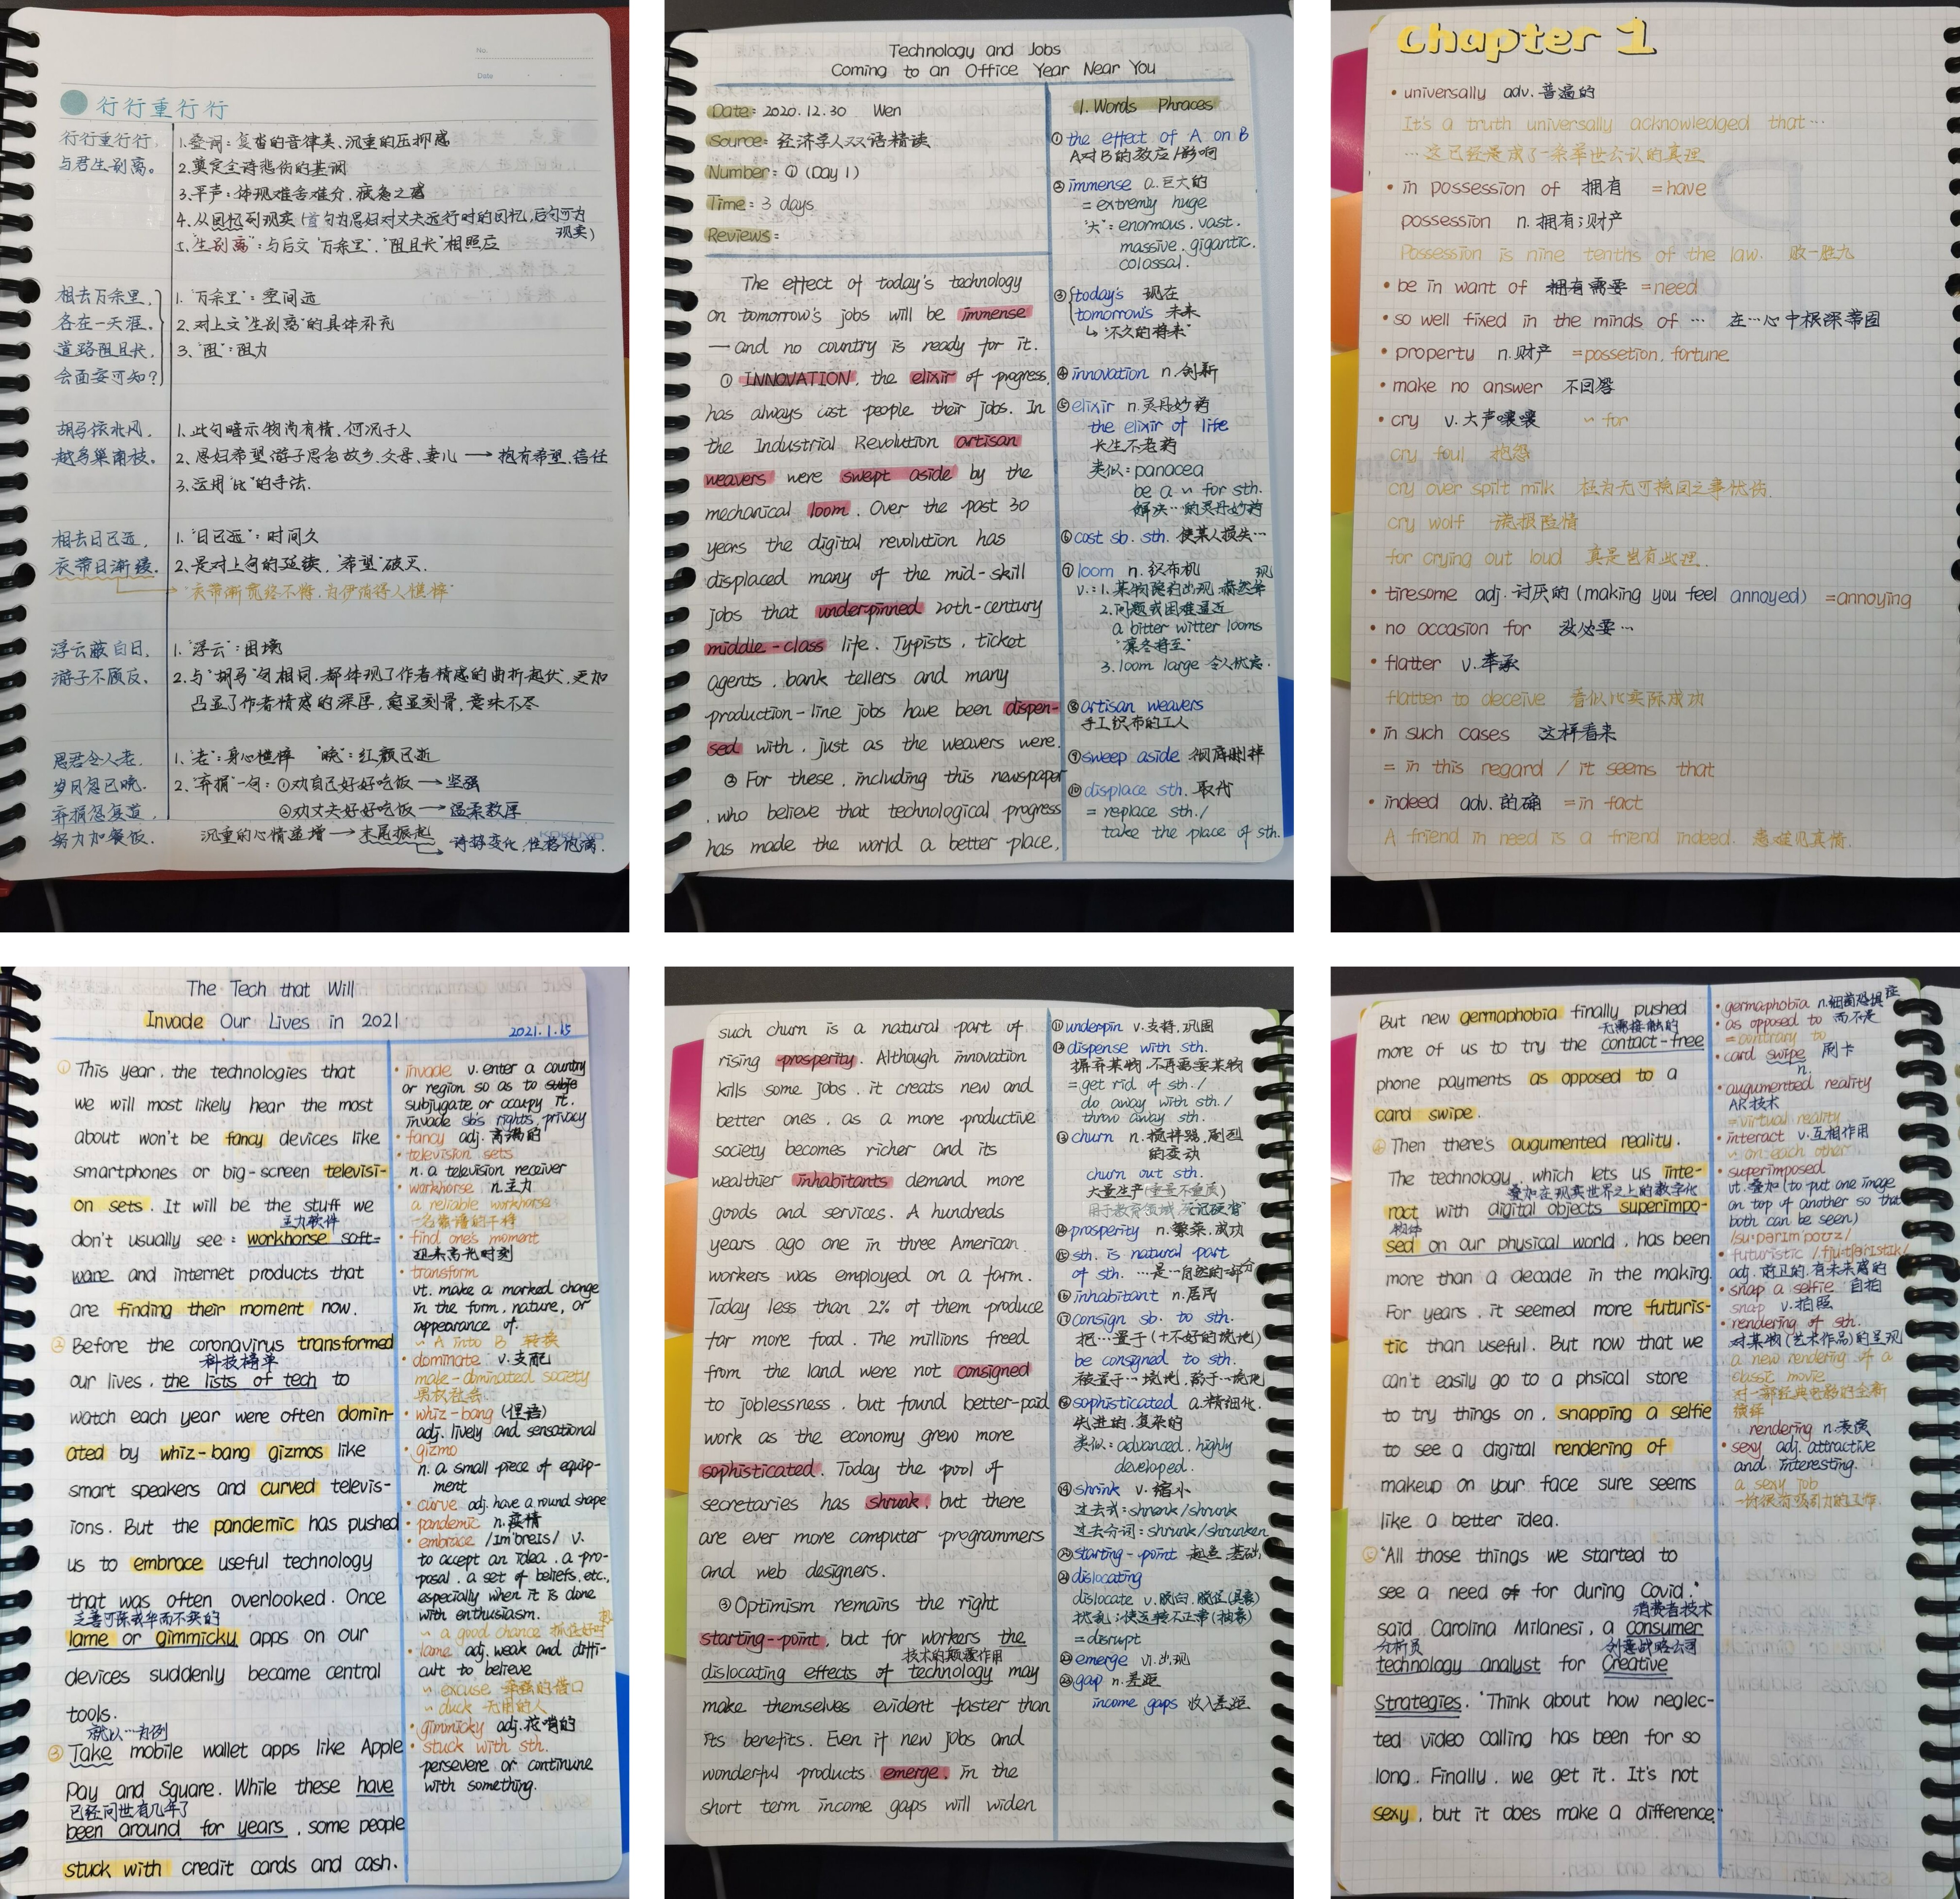 No.
Date
行行重行行
行行重行行,
与君生别离。
1.叠词:复沓的音律美、沉重的压抑感
2.奠定全诗悲伤的基调
3.平声:体现难舍难分、疲惫之感
4.从回忆到现实(首句为思妇对丈夫远行时的回忆,后句可为现实)
5."生别离":与后文"万余里"、"阻且长"相照应
相去万余里,
各在一天涯。
道路阻且长,
会面安可知?
1."万余里":空间远
2.对上文"生别离"的具体补充
3."阻":阻力
胡马依北风,
越鸟巢南枝。
1.此句暗示物尚有情,何况于人
2.思妇希望游子思念故乡、父母、妻儿→抱有希望、信任
3.运用"比"的手法.
相去日已远,
衣带日渐缓。
1."日已远":时间久
2.是对上句的延续,"希望"破灭.
"衣带渐宽终不悔,为伊消得人憔悴"
浮云蔽白日,
游子不顾反。
1."浮云":困境
2.与"胡马"句相同,都体现了作者情感的曲折起伏,更加
凸显了作者情感的深厚,愈显刻骨,意味不尽
思君令人老,
岁月忽已晚。
弃捐忽复道,
努力加餐饭。
1."老":身心憔悴 "晚":红颜已逝
2."弃捐"一句:①劝自己好好吃饭→坚强
②劝丈夫好好吃饭→温柔敦厚
沉重的心情递增→末尾振起
诗持变化,性格饱满.
KOKUYO
Technology and Jobs
Coming to an Office Year Near You
Date: 2020.12.30 Wen
Source: 经济学人双语精读
Number: ① (Day 1)
Time: 3 days
Reviews:
The effect of today's technology
on tomorrow's jobs will be immense
—and no country is ready for it.
① INNOVATION, the elixir of progress,
has always cost people their jobs. In
the Industrial Revolution artisan
weavers were swept aside by the
mechanical loom. Over the past 30
years the digital revolution has
displaced many of the mid-skill
jobs that underpinned 20th-century
middle-class life. Typists, ticket
agents, bank tellers and many
production-line jobs have been dispen-
sed with, just as the weavers were.
② For these, including this newspaper
, who believe that technological progress
has made the world a better place,
1. Words Phrases
① the effect of A on B
A对B的效应/影响
② immense a.巨大的
= extremly huge
"大": enormous, vast,
massive, gigantic,
colossal.
③ today's 现在
tomorrow's 未来
↳ "不久的将来"
④ innovation n.创新
⑤ elixir n.灵丹妙药
the elixir of life
长生不老药
类似: panacea
be a ~ for sth.
解决…的灵丹妙药
⑥ cost sb. sth. 使某人损失…
⑦ loom n.织布机
v.: 1.某物隐约出现,赫然耸现
2.问题或困难逼近
a bitter witter looms
"寒冬将至"
3. loom large 令人忧虑.
⑧ artisan weavers
手工织布的工人
⑨ sweep aside 彻底删掉
⑩ displace sth. 取代
= replace sth./
take the place of sth.
Chapter 1
• universally adv.普遍的
It's a truth universally acknowledged that…
…这已经是成了一条举世公认的真理
• in possession of 拥有 =have
possession n.拥有;财产
Possession is nine tenths of the law. 败一胜九
• be in want of 拥有需要 =need
• so well fixed in the minds of … 在…心中根深蒂固
• property n.财产 =possetion, fortune
• make no answer 不回答
• cry v.大声嚷嚷 ~ for
cry foul 抱怨
cry over spilt milk 枉为无可挽回之事忧伤.
cry wolf 谎报险情
for crying out loud 真是岂有此理.
• tiresome adj.讨厌的 (making you feel annoyed) =annoying
• no occasion for 没必要…
• flatter v.奉承
flatter to deceive 看似比实际成功
• in such cases 这样看来
= in this regard / it seems that
• indeed adv.的确 =in fact
A friend in need is a friend indeed. 患难见真情.
The Tech that Will
Invade Our Lives in 2021
2021.1.15
① This year, the technologies that
we will most likely hear the most
about won't be fancy devices like
smartphones or big-screen televisi-
on sets. It will be the stuff we
主力软件
don't usually see: workhorse soft-
ware and internet products that
are finding their moment now.
② Before the coronavirus transformed
科技榜单
our lives, the lists of tech to
watch each year were often domin-
ated by whiz-bang gizmos like
smart speakers and curved televis-
ions. But the pandemic has pushed
us to embrace useful technology
that was often overlooked. Once
乏善可陈或华而不实的
lame or gimmicky apps on our
devices suddenly became central
tools.
就以…为例
③ Take mobile wallet apps like Apple
Pay and Square. While these have
已经问世有几年了
been around for years, some people
stuck with credit cards and cash.
• invade v.enter a country
or region so as to subje
subjugate or occupy it.
invade sb's rights, privacy
• fancy adj.高端的
• television sets
n. a television receiver
• workhorse n.主力
a reliable workhorse
• find one's moment
迎来高光时刻
• transform
vt. make a marked change
in the form, nature, or
appearance of.
~ A into B 转换
• dominate v.支配
male-dominated society
男权社会
• whiz-bang (俚语)
adj. lively and sensational
• gizmo
n. a small piece of equip-
ment
• curve adj. have a round shape
• pandemic n.疫情
• embrace /ɪmˈbreɪs/ v.
to accept an idea, a pro-
posal, a set of beliefs, etc.,
especially when it is done
with enthusiasm.
~ a good chance 抓住好时机
• lame adj. weak and diffi-
cult to believe
~ excuse 牵强的借口
~ duck 无用的人
• gimmicky adj.花哨的
• stuck with sth.
persevere or continune
with something.
such churn is a natural part of
rising prosperity. Although innovation
kills some jobs, it creats new and
better ones, as a more productive
society becomes richer and its
wealthier inhabitants demand more
goods and services. A hundreds
years ago one in three American
workers was employed on a farm.
Today less than 2% of them produce
far more food. The millions freed
from the land were not consigned
to joblessness, but found better-paid
work as the economy grew more
sophisticated. Today the pool of
secretaries has shrunk, but there
are ever more computer programmers
and web designers.
③ Optimism remains the right
starting-point, but for workers the
技术的颠覆作用
dislocating effects of technology may
make themselves evident faster than
its benefits. Even if new jobs and
wonderful products emerge, in the
short term income gaps will widen
⑪ underpin v.支持,巩固
⑫ dispense with sth.
摒弃某物,不再需要某物
= get rid of sth./
do away with sth./
throw away sth.
⑬ churn n.搅拌器,剧烈
的变动
churn out sth.
大量生产(重量不重质)
用于教育领域,死记硬背
⑭ prosperity n.繁荣,成功
⑮ sth. is natural part
of sth. …是…自然的一部分
⑯ inhabitant n.居民
⑰ consign sb. to sth.
把…置于(+不好的境地)
be consigned to sth.
被置于…境地,陷于…境地
⑱ sophisticated a.精细化,
先进的,复杂的
类似: advanced, highly
developed.
⑲ shrink v.缩小
过去式: shrank/shrunk
过去分词: shrunk/shrunken
⑳ starting-point 起点,基础,
㉑ dislocating
dislocate v.脱臼,脱位(具象)
扰乱;使运转不正常(抽象)
= disrupt
㉒ emerge vi.出现
㉓ gap n.差距
income gaps 收入差距
But new germaphobia finally pushed
无需接触的
more of us to try the contact-free
phone payments as opposed to a
card swipe.
④ Then there's augumented reality.
The technology, which lets us inte-
叠加在现实世界之上的数字化
ract with digital objects superimpo-
物体
sed on our physical world, has been
more than a decade in the making.
For years, it seemed more futuris-
tic than useful. But now that we
can't easily go to a phsical store
to try things on, snapping a selfie
to see a digital rendering of
makeup on your face sure seems
like a better idea.
⑤ "All those things we started to
see a need of for during Covid."
消费者技术
said Carolina Milanesi, a consumer
分析员 创意战略公司
technology analyst for Creative
Strategies. "Think about how neglec-
ted video calling has been for so
long. Finally, we get it. It's not
sexy, but it does make a difference."
• germaphobia n.细菌恐惧症
• as opposed to 而不是
= contrary to
• card swipe 刷卡
n.
• augumented reality
AR技术
= virtual reality
• interact v.互相作用
~ on each other
• superimposed
vt.叠加(to put one image
on top of another so that
both can be seen)
• futuristic
adj.前卫的,有未来感的
• snap a selfie 自拍
snap v.拍照
• rendering of sth.
对某物(艺术作品)的呈现
a new rendering of a
classic movie
对一部经典电影的全新
演绎
rendering n.表演
• sexy adj. attractive
and interesting.
a sexy job
一份很有吸引力的工作.